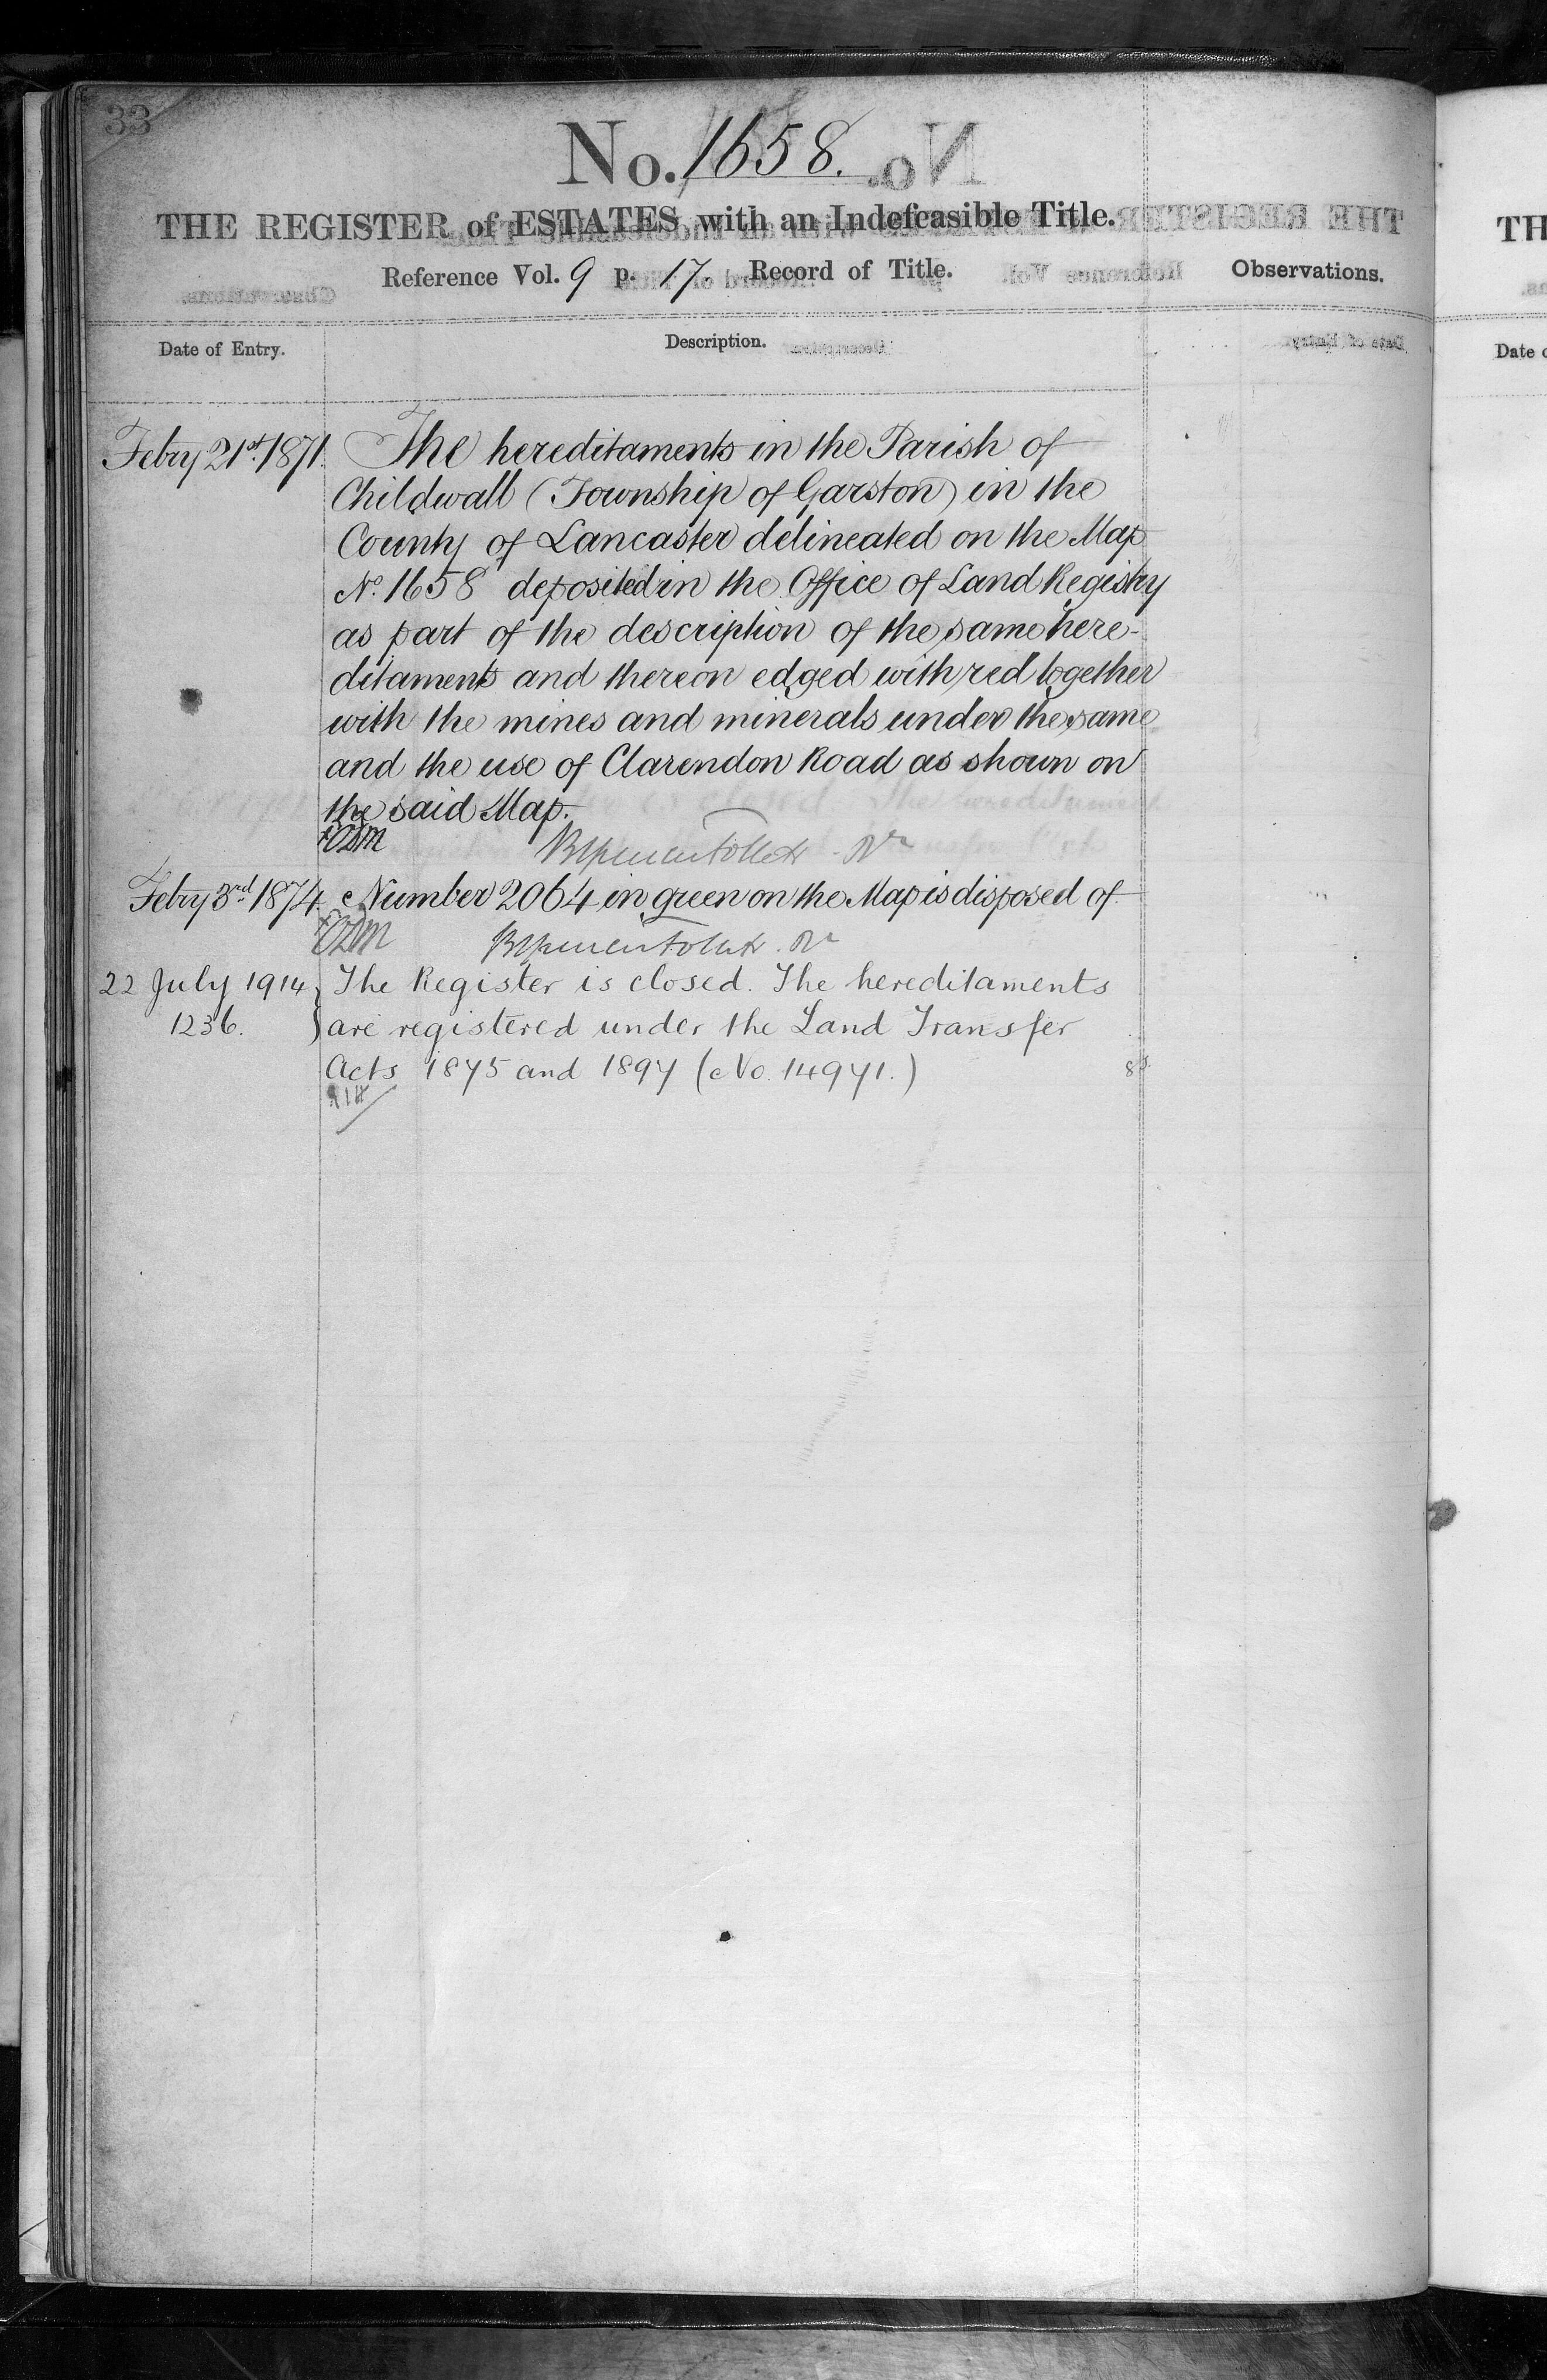 33
No. 1658.
THE REGISTER of ESTATES with an Indefeasible Title.
Reference Vol. 9 p. 17. Record of Title. Observations.
Date of Entry. Description.
Febry 21st. 1871. The hereditaments in the Parish of
Childwall (Township of Garston) in the
County of Lancaster delineated on the Map
No. 1658 deposited in the Office of Land Registry
as part of the description of the same here-
ditaments and thereon edged with red together
with the mines and minerals under the same
and the use of Clarendon Road as shown on
the said Map.
Febry 3rd 1874. Number 2064 in green on the Map is disposed of
22 July 1914 The Register is closed. The hereditaments
1236. are registered under the Land Transfer
Acts 1875 and 1897 (No. 14971.)
TH
Date